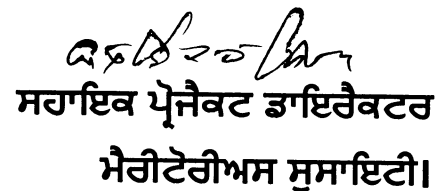 ਸਹਾਇਕ ਪ੍ਰੋਜੈਕਟ ਡਾਇਰੈਕਟਰ
ਮੈਰੀਟੋਰੀਅਸ ਸੁਸਾਇਟੀ।